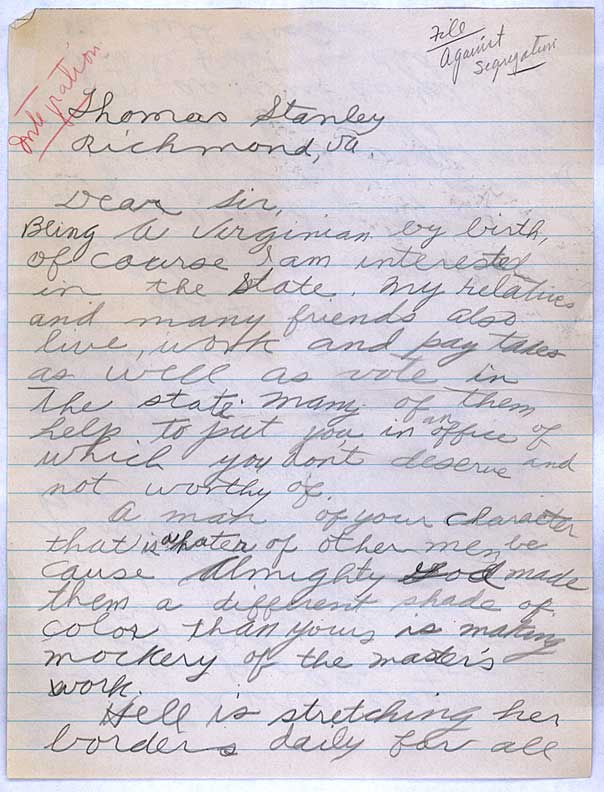 File
Against
Segregation
Integration
Thomas Stanley
Richmond, Va.
Dear Sir,
Being A Virginian by birth,
of course I am interested
in the State. My relatives
and many friends also
live, work and pay taxes
as well as vote in
the state. Many of them
help to put you in an office, of
which you dont deserve and
not worthy of.
A man of your character
that is a hater of other men be
cause Almighty God made
them a different shade of
color than yours is making
mockery of the master's
work.
Hell is stretching her
borders daily for all